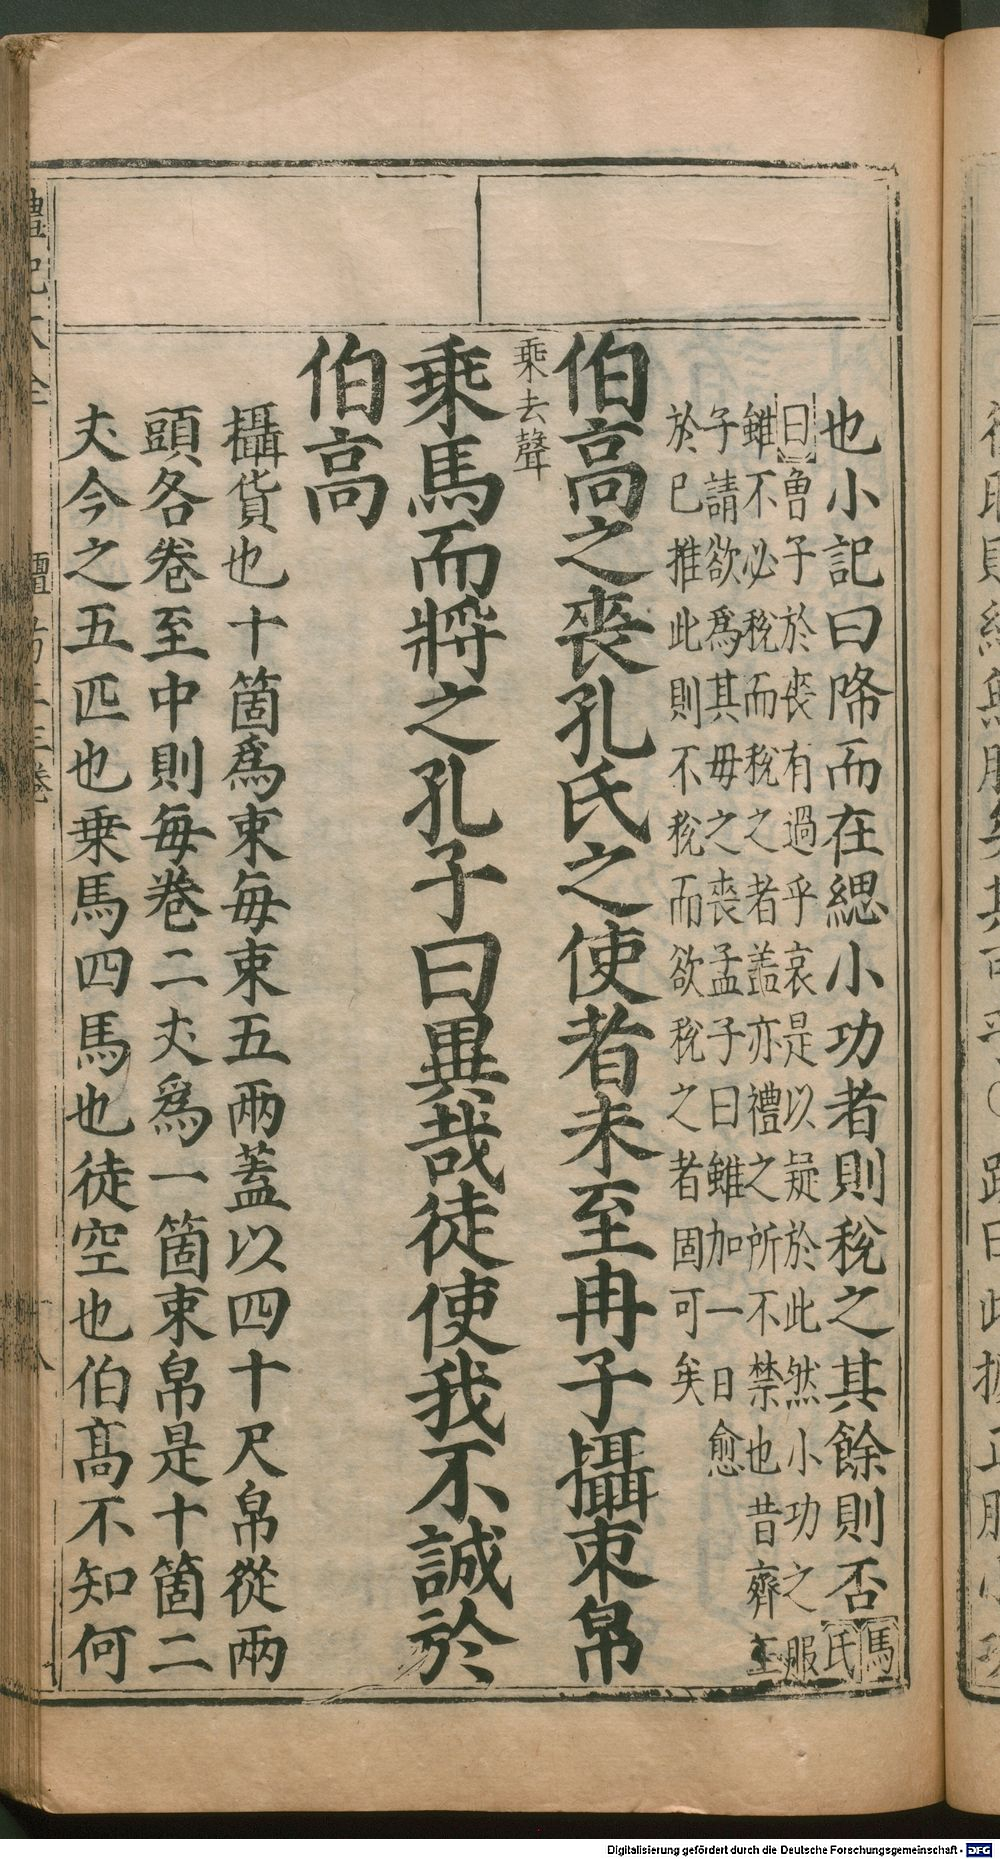 也小記曰降而在緦小功者則稅之其餘則否馬氏
曰曾子於喪有過乎哀是以疑於此然小功之服
雖不必稅而稅之者盖亦禮之所不禁也昔齊王
子請欲爲其母之喪孟子曰雖加一日愈
於已推此則不稅而欲稅之者固可矣
伯高之喪孔氏之使者未至冉子攝束帛
乘去聲
乘馬而將之孔子曰異哉徒使我不誠於
伯高
攝貨也十箇爲束每束五兩蓋以四十尺帛從兩
頭各卷至中則每卷二丈爲一箇束帛是十箇二
丈今之五匹也乗馬四馬也徒空也伯髙不知何
禮記大全
檀弓上三卷
十八
Digitalisierung gefördert durch die Deutsche Forschungsgemeinschaft - DFG